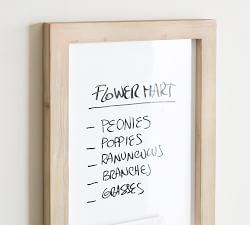 FLOWER MART
- PEONIES
- POPPIES
- RANUNCULUS
- BRANCHES
- GRASSES